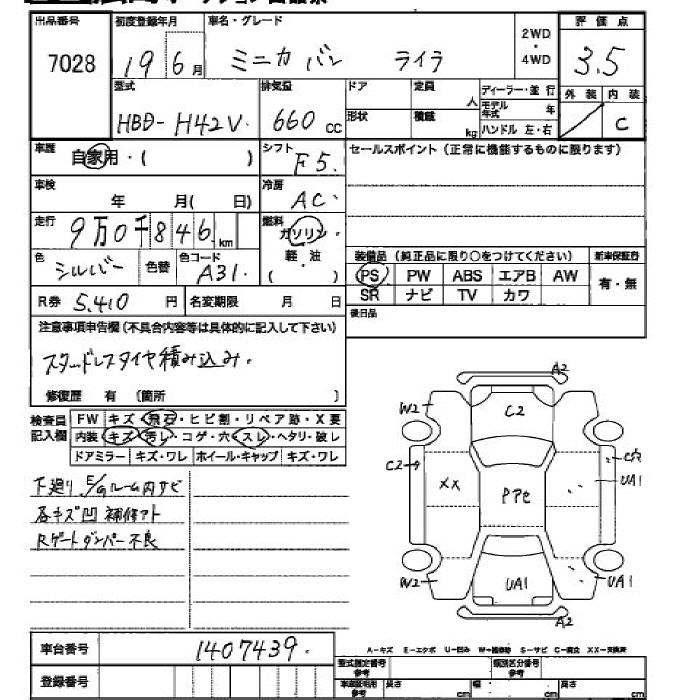 出品番号 初度登録年月 車名・グレード 2WD・4WD 評価点
7028 19 6月 ミニカバン ライラ 3.5
型式 排気量 ドア 定員 人 ディーラー・並行 外装 内装
HBD-H42V 660cc 形状 積載 kg モデル年式 年 ハンドル 左・右 C
車歴 自家用・( ) シフト F5. セールスポイント(正常に機能するものに限ります)
車検 年 月( 日) 冷房 AC
走行 9万0千846km 燃料 ガソリン 軽・油 ( )
色 シルバー 色替 色コード A31. 装備品(純正品に限り○をつけてください) 新車保証書
PS PW ABS エアB AW 有・無
SR ナビ TV カワ
R券 5.410円 名変期限 月 日 後日品
注意事項申告欄(不具合内容等は具体的に記入して下さい)
スタッドレスタイヤ積み込み.
修復歴 有 〔箇所 〕
検査員記入欄 FW キズ・飛石・ヒビ割・リペア跡・X要
内装 キズ・汚レ・コゲ・穴・スレ・ヘタリ・破レ
ドアミラー キズ・ワレ ホイール・キャップ キズ・ワレ
下廻り E/gルーム内サビ
各キズ凹 補修アト
Rゲートダンパー不良
A2
W2 C2
C2 XX PアC C穴
UA1
W2 UA1 UA1
A2
車台番号 1407439.
A-キズ E-エクボ U-凹み W-補修跡 S-サビ C-腐食 XX-交換済
登録番号 型式指定番号 参考 類別区分番号 参考
車庫証明用 参考 長さ cm 幅 cm 高さ cm